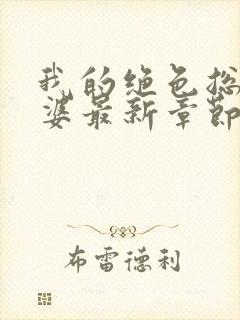 我的绝色总
婆最新章节
布雷德利